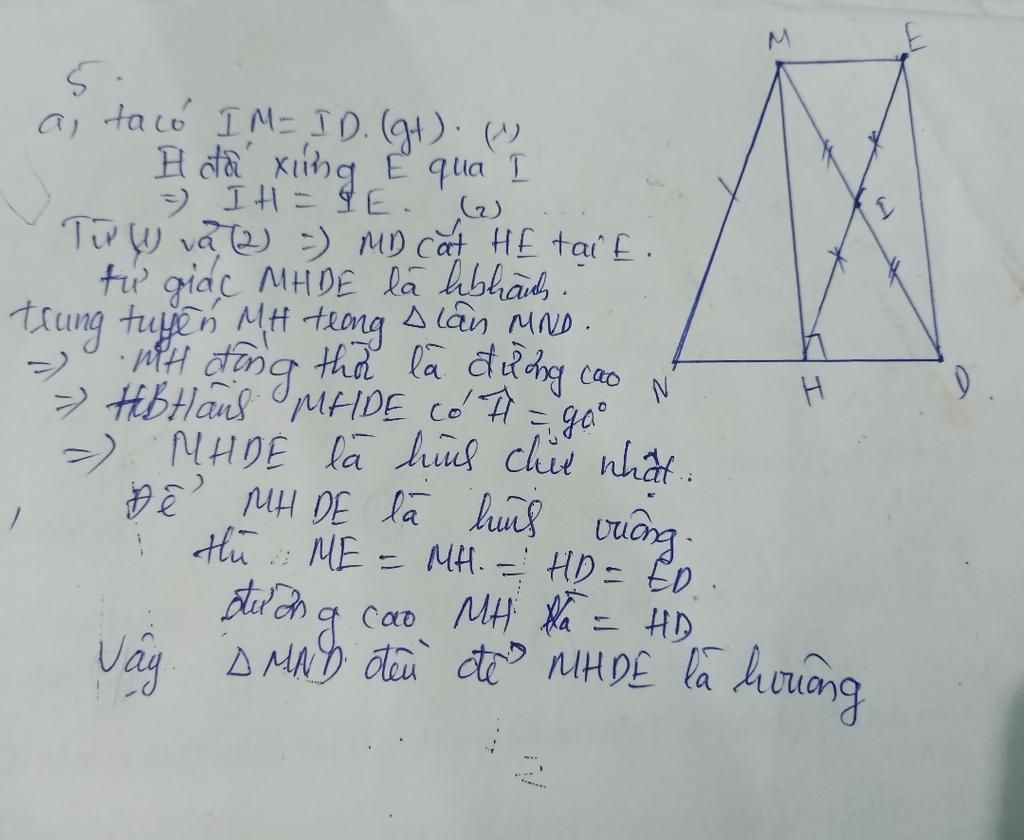 5.
a, ta có IM = ID. (gt). (1)
H đối xứng E qua I
=> IH = IE. (2)
Từ (1) và (2) => MD cắt HE tại E.
tứ giác MHDE là hbhành.
trung tuyến MH trong Δ cân MND.
=> MH đồng thời là đường cao
=> HBHành MHDE có Ĥ = 90°
=> MHDE là hình chữ nhật.
Để MHDE là hình vuông.
thì ME = MH = HD = ED.
đường cao MH = HD
Vậy ΔMND đều để MHDE là hvuông
M
E
I
N
H
D
2